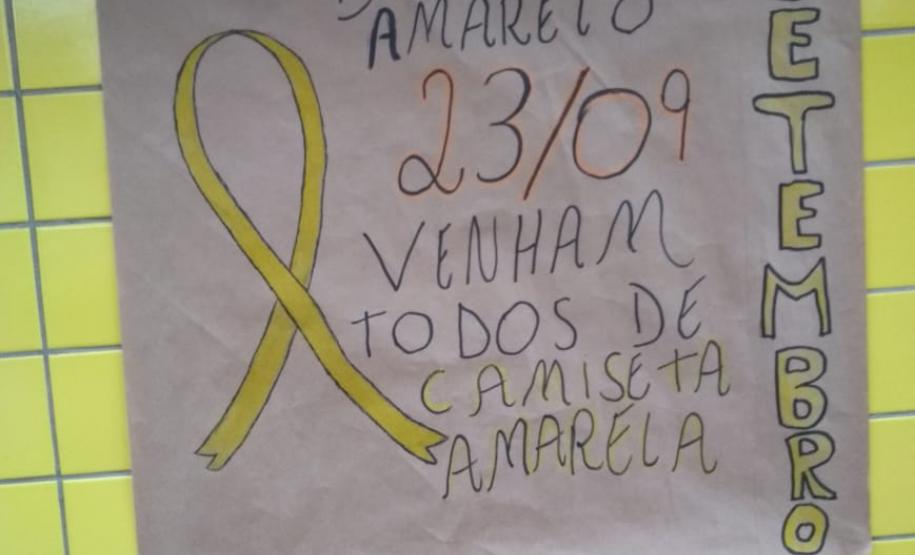 AMARELO
23/09
VENHAM
TODOS DE
CAMISETA
AMARELA
ETEMBRO